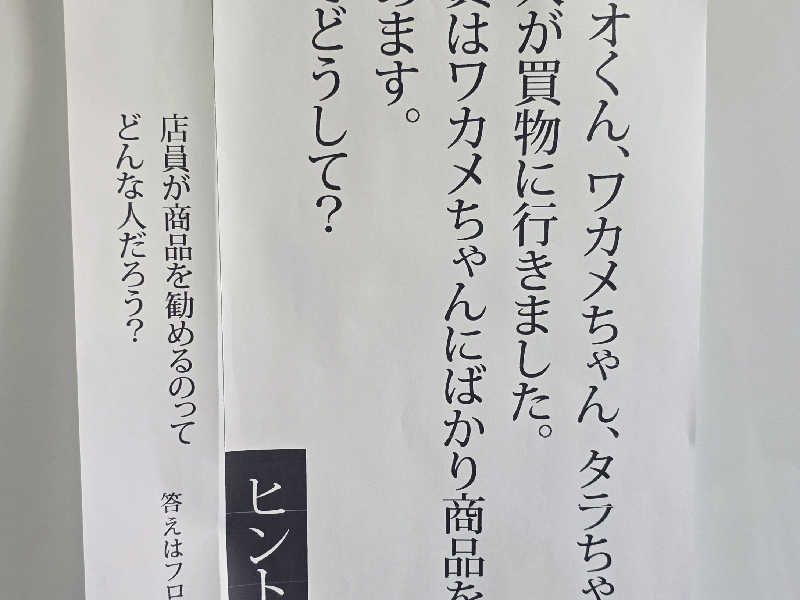 オくん、ワカメちゃん、タラちゃ
が買物に行きました。
はワカメちゃんにばかり商品を
ます。
どうして？
ヒント
店員が商品を勧めるのって
どんな人だろう？
答えはフロ